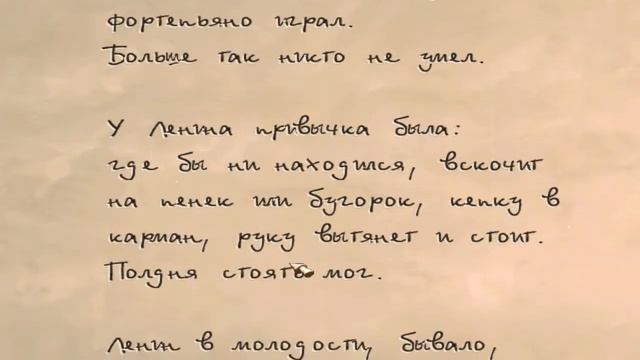 фортепьяно играл.
Больше так никто не умел.
У Ленина привычка была:
где бы ни находился, вскочит
на пенек или бугорок, кепку в
карман, руку вытянет и стоит.
Полдня стоять мог.
Ленин в молодости, бывало,